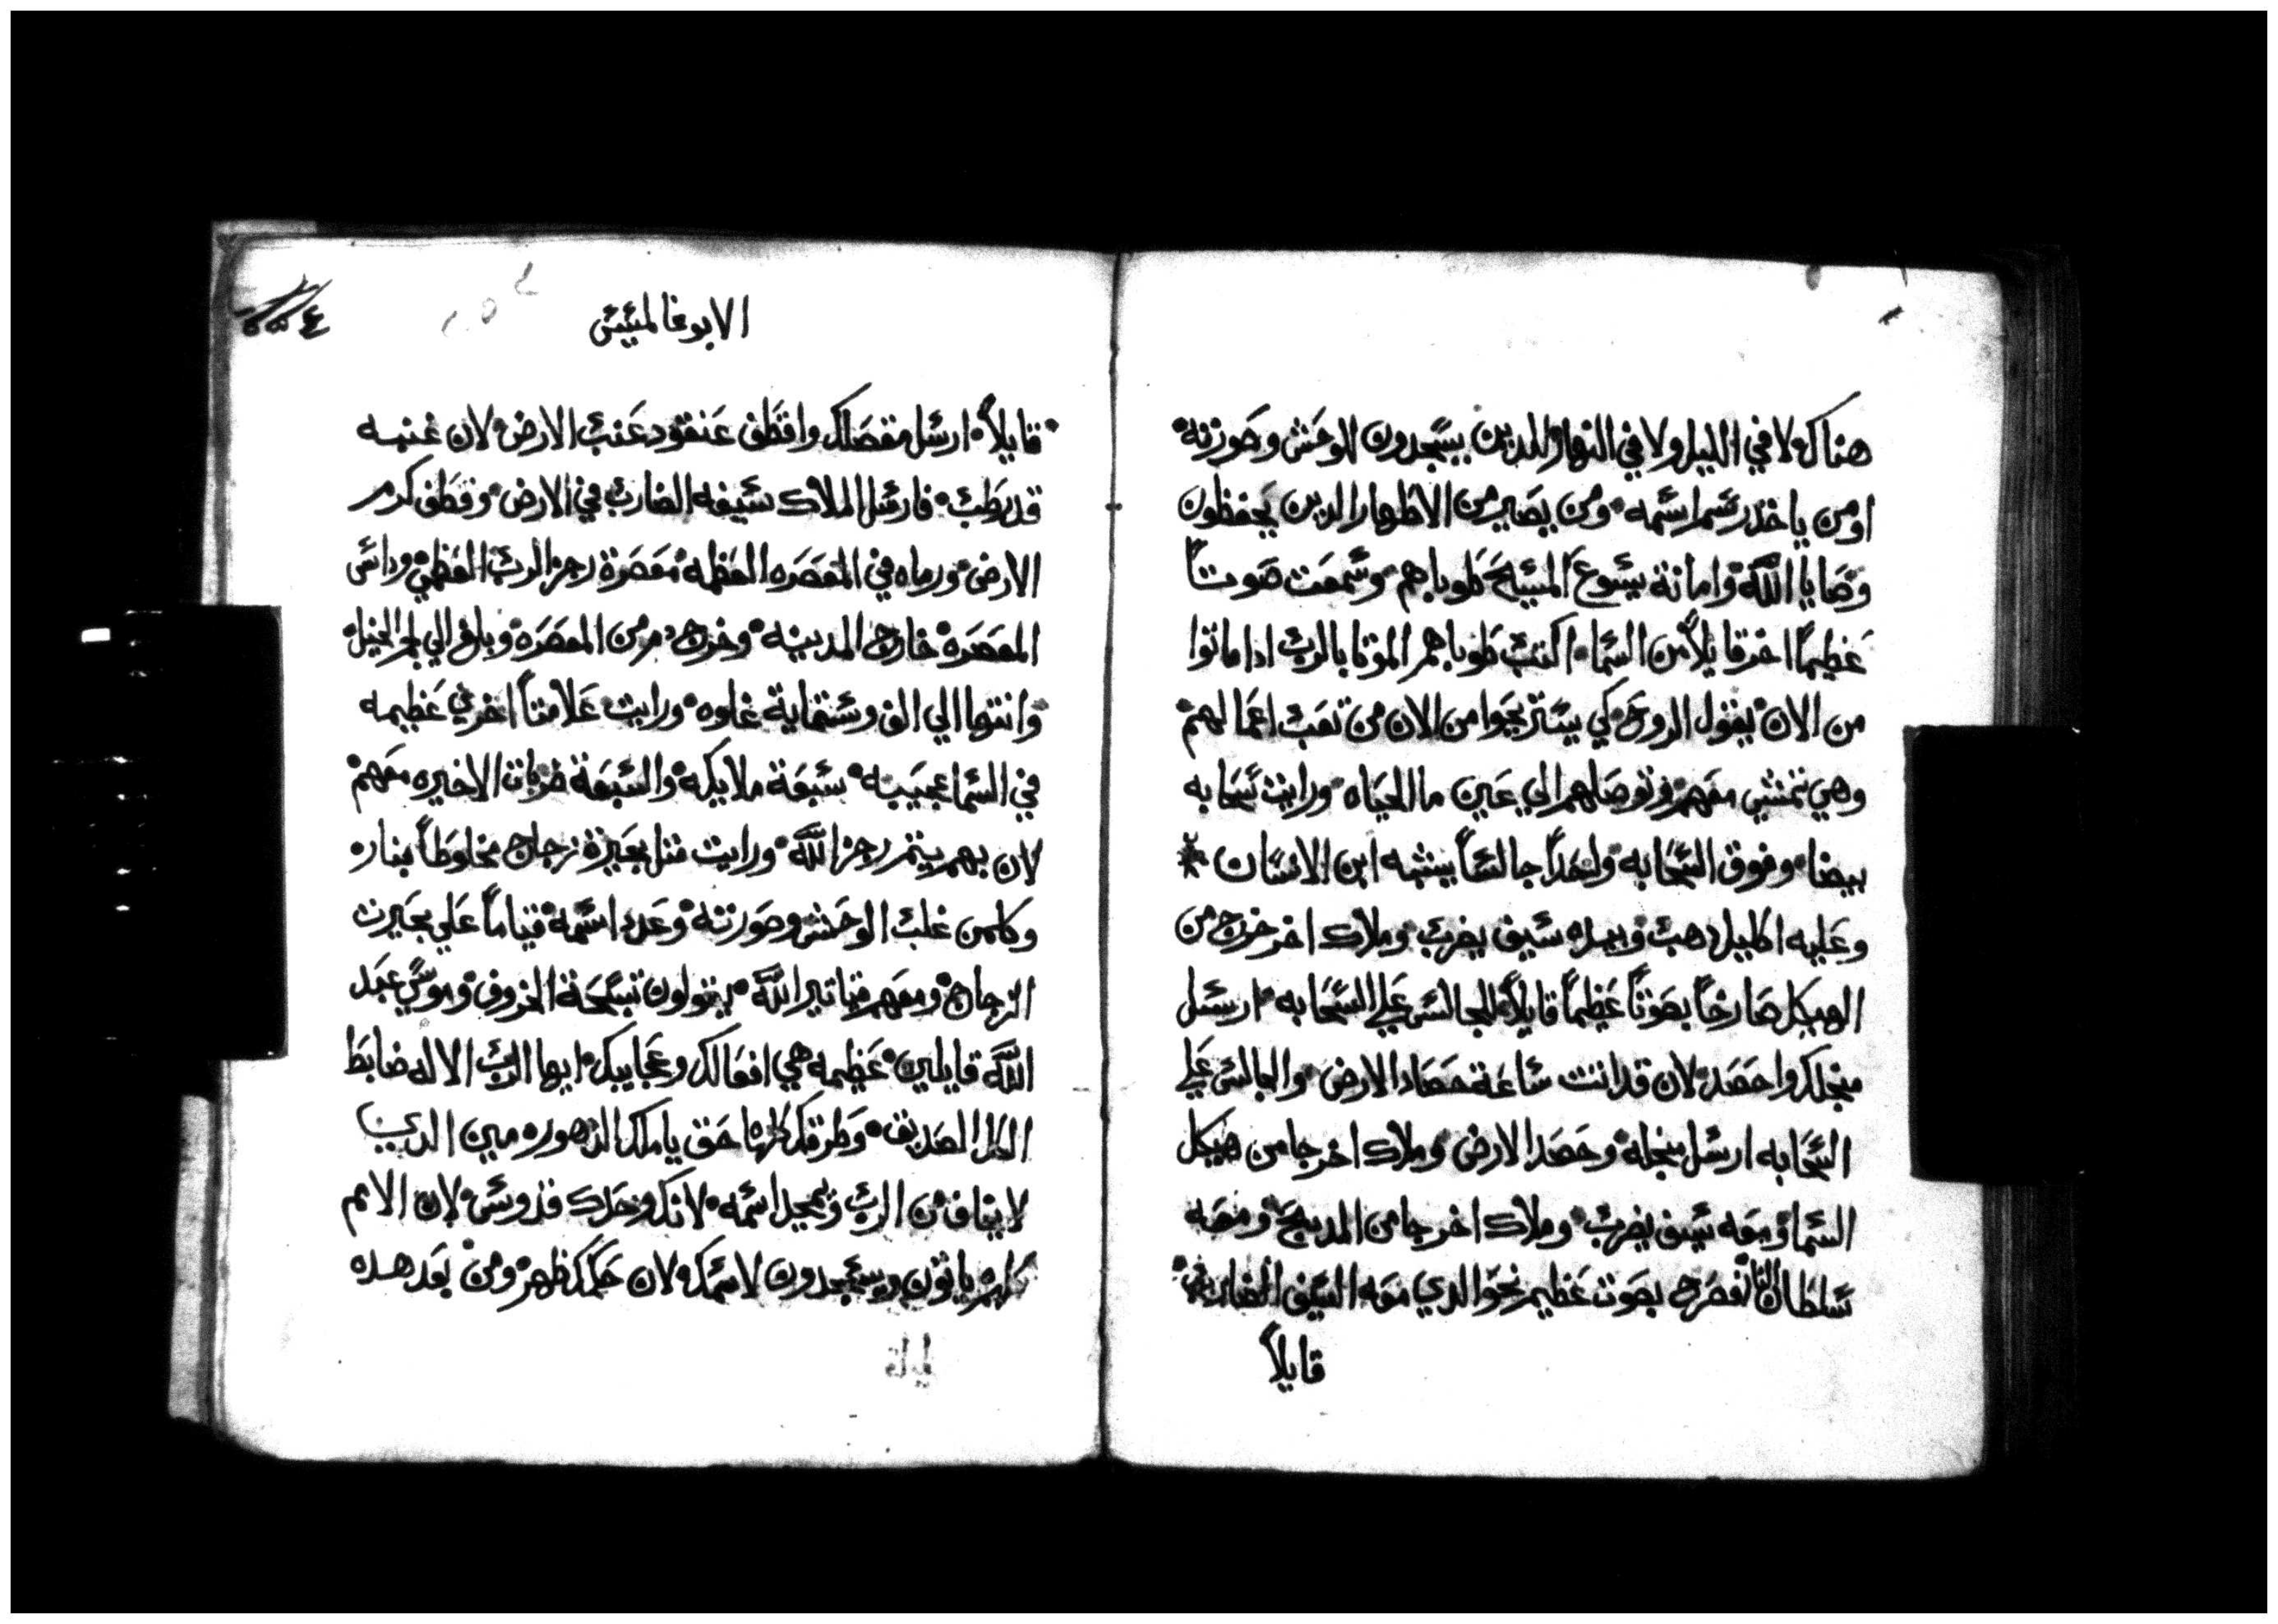 هناك لا في الليل ولا في النهار للدين يسجدون للوحش وصورته
او من ياخد رسم اسمه ومن يصير من الاطهار الدين يحفظون
وصايا الله وامانة يسوع المسيح طوباهم وسمعت صوتاً
عظيماً اخر قايلاً من السما اكتب طوباهم الموتا بالرب ادا ماتوا
من الان يقول الروح كي يستريحوا من الان من تعب اعمالهم
وهي تمشي معهم وتوصلهم الي عين ما الحياه ورايت سحابه
بيضا وفوق السحابه واحداً جالساً يشبه ابن الانسان
وعليه اكليل دهب وبيده سيف يضرب وملاك اخر خرج من
الهيكل صارخاً بصوتاً عظيماً قايلاً للجالس علي السحابه ارسل
منجلك واحصد لان قد اتت ساعة حصاد الارض والجالس علي
السحابه ارسل منجله وحصد الارض وملاك اخر جا من هيكل
السما ومعه سيف يضرب وملاك اخر جا من المدبح ومعه
سلطان النار فصرخ بصوت عظيم نحو الدي معه السيف الضارب
قايلاً
الابوغالمسيس
قايلاً ارسل مقصلك واقطف عنقود عنب الارض لان عنبه
قد طب فارسل الملاك سيفه الضارب في الارض وقطف كرم
الارض ورماه في المعصره العظمه معصرة رجز الرب العظمي وداس
المعصرة خارج المدينه وخرج دم من المعصره وبلغ الي لجم الخيل
وانتها الي الف وستماية غلوه ورايت علامتاً اخري عظيمه
في السما عجيبه سبعة ملايكه والسبعة ضربات الاخيره معهم
لان بهم يتم رجز الله ورايت متل بحيرة زجاج مخلوطاً بناره
وكلمن غلب الوحش وصورته وعدد اسمه قياماً علي بحيرت
الزجاج ومعهم قياتير الله يقولون تسبحة الخروف وموسي عبد
الله قايلين عظيمه هي افعالك وعجايبك ايها الرب الاله ضابط
الكل الصديق وطرقك كلها حق يا ملك الدهور مين الدي
لا يخاف من الرب ويمجد اسمه لانك وحدك قدوس لان الامم
كلهم ياتون ويسجدون لاسمك لان حكمك ظهر ومن بعد هده